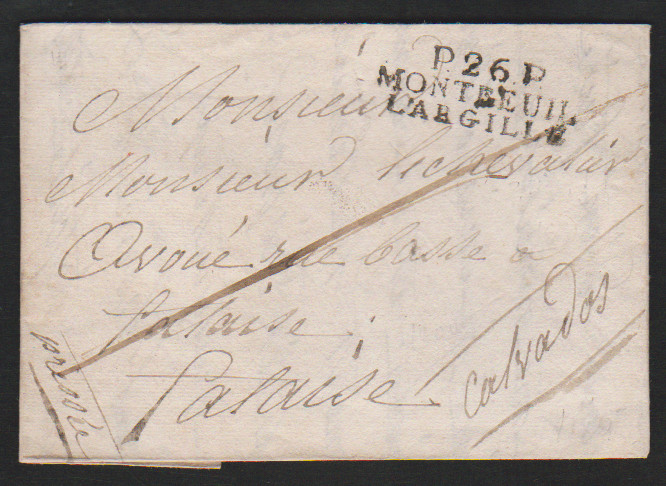 P.26.P.
MONTREUIL
L'ARGILLÉ
Monsieur
Monsieur lechevalier
avoué rue basse a
falaise.
falaise.
Calvados
pressée